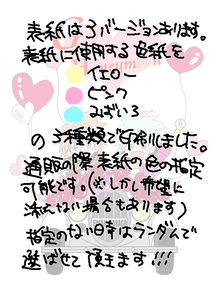 表紙は3バージョンあります。
表紙に使用する色紙を
イエロー
ピンク
みずいろ
の3種類で刷りました。
通販の際 表紙の色の指定
可能です。(※しかし希望に
添えない場合もあります)
指定のない日幸はランダムで
選ばせて頂きます!!!